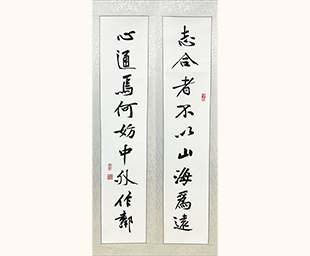 志合者不以山海爲遠
心通焉何妨中外作鄰